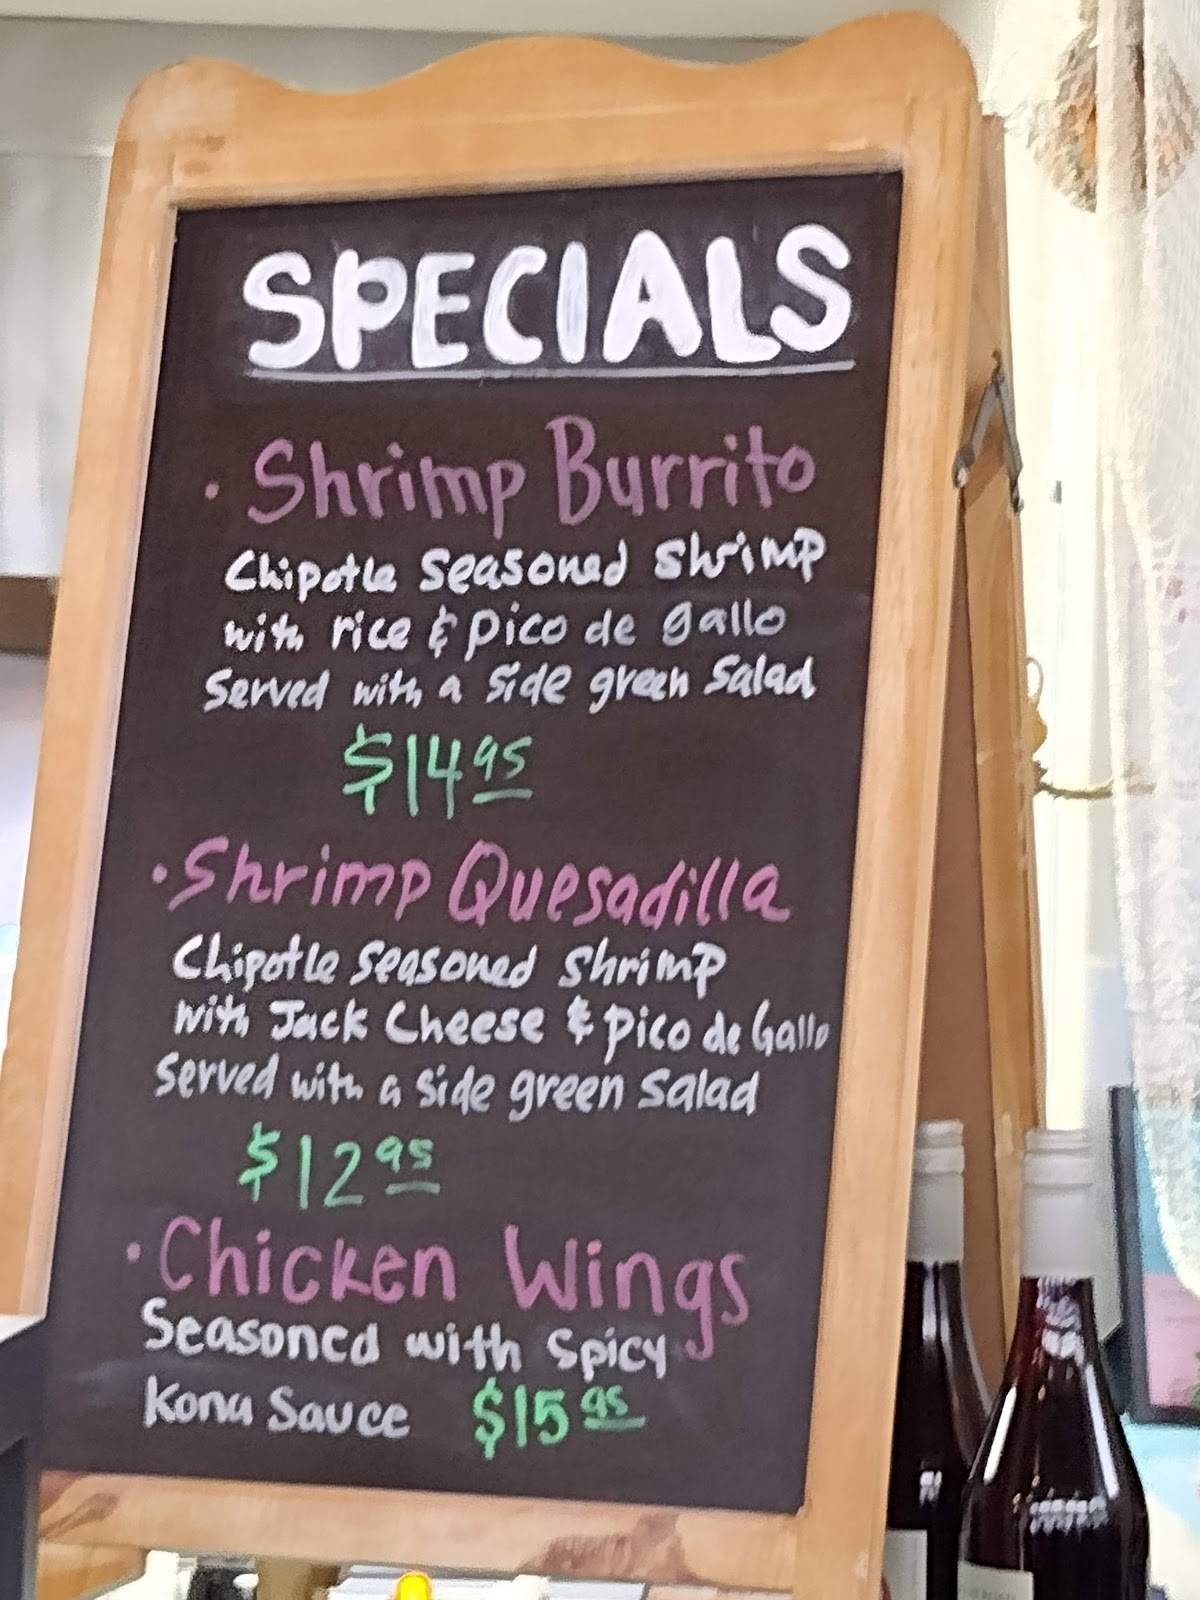 SPECIALS
· Shrimp Burrito
Chipotle Seasoned Shrimp
with rice & pico de gallo
Served with a side green Salad
$14.95
· Shrimp Quesadilla
Chipotle Seasoned Shrimp
with Jack Cheese & pico de Gallo
Served with a side green Salad
$12.95
· Chicken Wings
Seasoned with Spicy
Kona Sauce $15.95